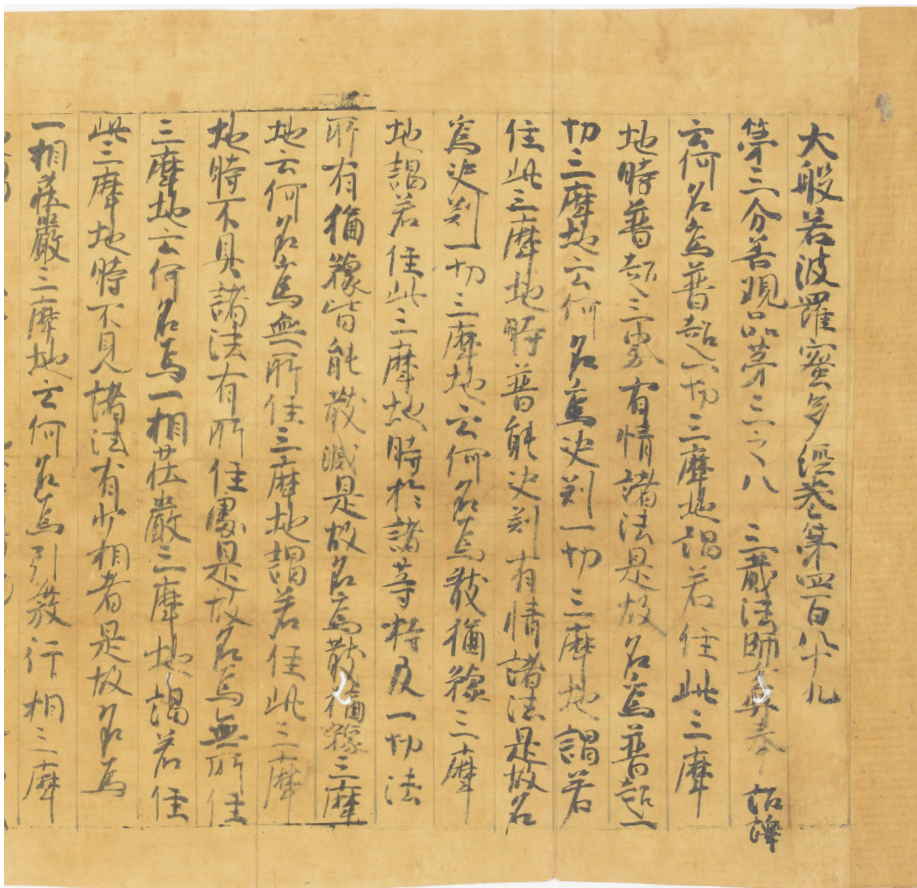 大般若波羅蜜多經卷第四百八十九
第三分善現品第三之八 三藏法師玄奘奉 詔譯
云何名為普超一切三摩地謂若住此三摩
地時普超三界有情諸法是故名為普超一
切三摩地云何名為決判一切三摩地謂若
住此三摩地時普能決判有情諸法是故名
為決判一切三摩地云何名為散猶豫三摩
地謂若住此三摩地時於諸等持及一切法
所有猶豫皆能散滅是故名為散猶豫三摩
地云何名為無所住三摩地謂若住此三摩
地時不見諸法有所住處是故名為無所住
三摩地云何名為一相莊嚴三摩地謂若住
此三摩地時不見諸法有少相者是故名為
一相莊嚴三摩地云何名為引發行相三摩